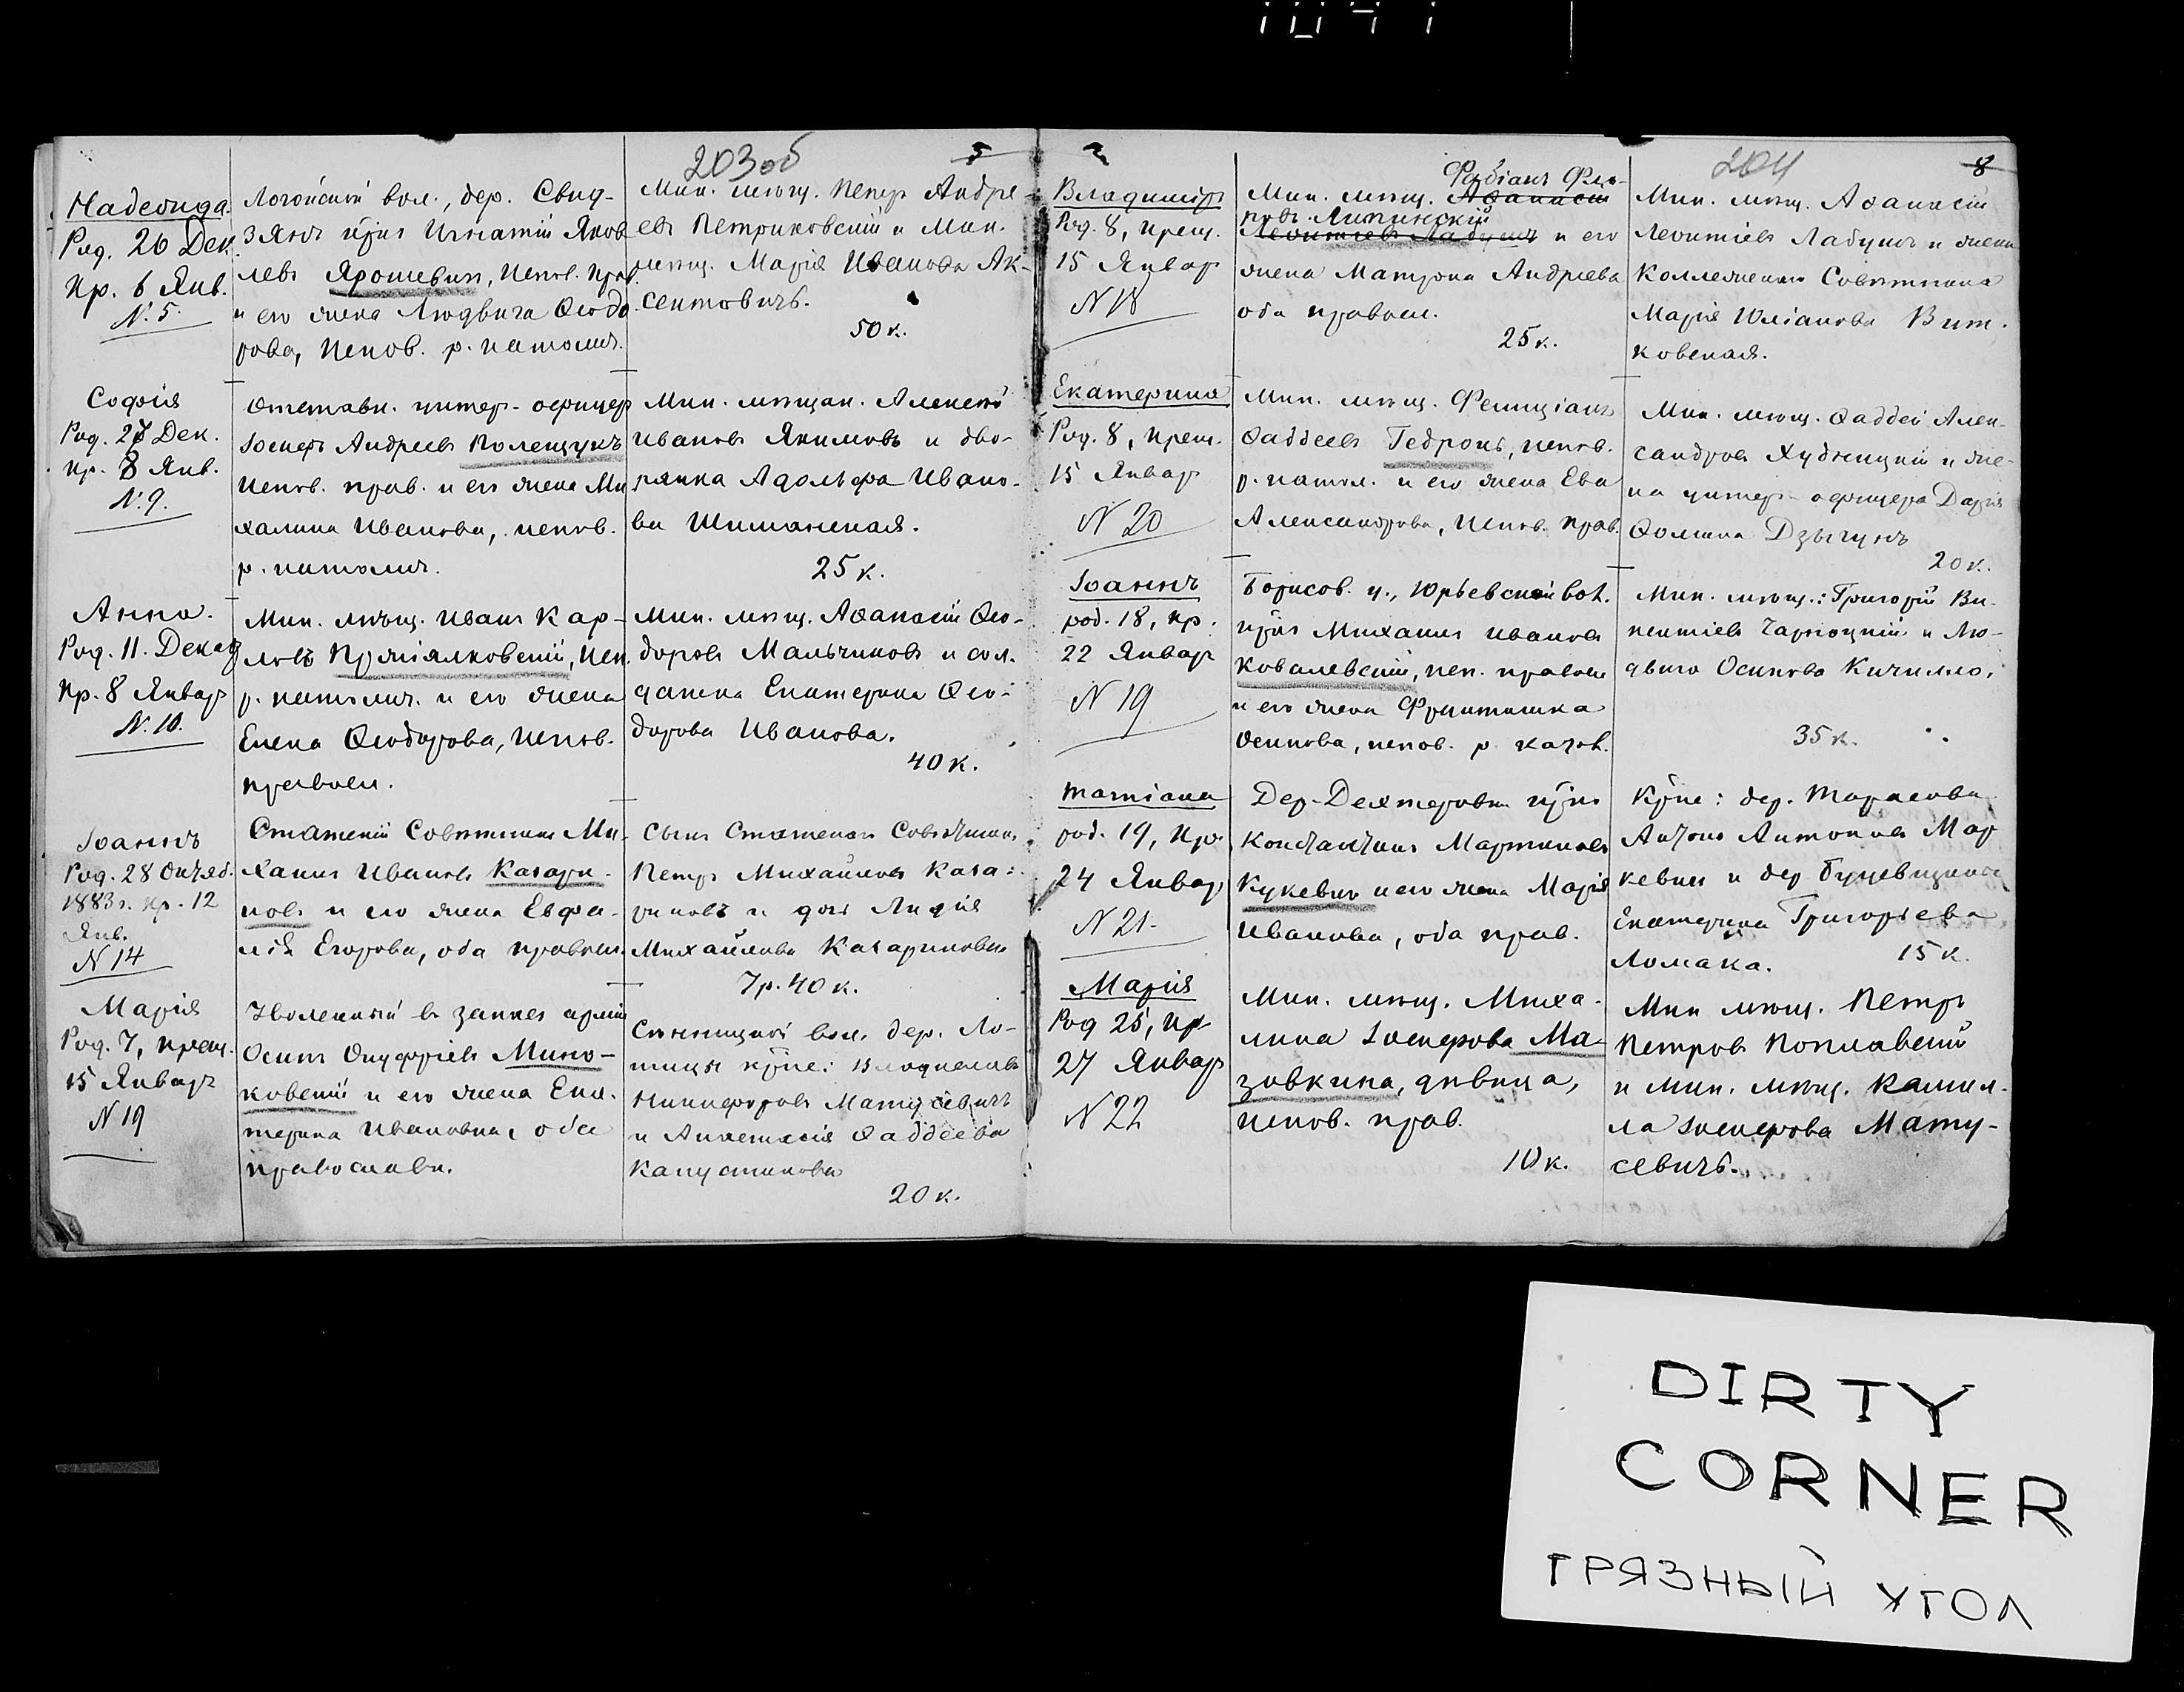 203об
Надежда.
Род. 26 Дек.
Кр. 6 Янв.
N. 5.
Логойской вол., дер. Свид-
крпн Игнатій Яков
левъ Ярошевичъ, испов. прав.
и его жена Людвига Ѳеодо
рова, испов. р. католич.
Мин. мѣщ. Петръ Андре-
евъ Петриковскій и Мин.
мѣщ. Марія Иванова Ак-
сентовичъ.
50 к.
Софія
Род. 27 Дек.
Кр. 8 Янв.
N. 9.
Отставн. унтер-офицер
Іосифъ Андреевъ Полещукъ
испов. прав. и его жена Ми
халина Иванова, испов.
р. католич.
Мин. мѣщан. Алексѣй
Ивановъ Якимовъ и дво-
рянка Адольфа Ивано-
ва Шиманская.
25 к.
Анна.
Род. 11. Декаб
Кр. 8 Январ
N. 10.
Мин. мѣщ. Иванъ Кар-
ловъ Пржіялковскій, исп.
р. католич. и его жена
Елена Ѳеодорова, испов.
правосл.
Мин. мѣщ. Аѳанасій Ѳео-
доровъ Мальчиковъ и сол-
датка Екатерина Ѳео-
дорова Иванова.
40 к.
Іоаннъ
Род. 28 Октяб.
1883 г. кр. 12
Янв.
N 14
Статскій Совѣтникъ Ми-
хаилъ Ивановъ Катари-
новъ и его жена Евфи-
мія Егорова, оба правосл.
Сынъ Статскаго Совѣтника
Петръ Михайловъ Ката-
риновъ и дочь Лидія
Михайлова Катаринова
7 р. 40 к.
Марія
Род. 7, крещ.
15 Январ
N 19
Уволенный в запасъ арміи
Осипъ Онуфріевъ Мино-
ковскій и его жена Ека-
терина Ивановна, оба
православн.
Сѣницкой вол. дер. Ло-
шицы крпне: Владиславъ
Никифоровъ Матусевичъ
и Анастасія Ѳаддеева
Капустинова
20 к.
204
8
Владиміръ
Род. 8, крещ.
15 Январ
N 18
Фабіанъ Фли-
Мин. мѣщ. Аѳанасій
повъ Липинскій
Леонтіевъ Лабунъ и его
жена Матрона Андреева
оба правосл.
25 к.
Мин. мѣщ. Аѳанасій
Леонтіевъ Лабунъ и жена
Коллежскаго Совѣтника
Марія Юліанова Вит-
ковская.
Екатерина
Род. 8, крещ.
15 Январ
N 20
Мин. мѣщ. Фелиціанъ
Ѳаддеевъ Гедронь, испов.
р. катол. и его жена Ева
Александрова, испов. прав.
Мин. мѣщ. Ѳаддей Алек-
сандровъ Худницкій и же-
на унтер-офицера Дарія
Ѳомина Дзыгунъ
20 к.
Іоаннъ
род. 18, кр.
22 Январ
N 19
Борисов. у., Юрьевской вол.
крпн Михаилъ Ивановъ
Ковалевскій, исп. правосл
и его жена Франтишка
Осипова, испов. р. катол.
Мин. мѣщ.: Григорій Ви-
кентіевъ Чарноцкій и Лю-
двига Осипова Кичилло.
35 к.
Татіана
род. 19, кр.
24 Январ
N 21.
Дер. Дехтеровки крпн
Константинъ Мартиновъ
Кукевичъ и его жена Марія
Иванова, оба прав.
Крпне: дер. Тарасова
Антонъ Антоновъ Мар
кевичъ и дер
Екатерина Григорьева
Ломака.
15 к.
Марія
Род 25, кр
27 Январ
N 22
Мин. мѣщ. Миха-
лина Іосифова Ма-
зовкина, дѣвица,
испов. прав.
10 к.
Мин мѣщ. Петръ
Петровъ Поплавскій
и мин. мѣщ. Камил-
ла Іосифова Мату-
севичъ.
DIRTY
CORNER
ГРЯЗНЫЙ УГОЛ